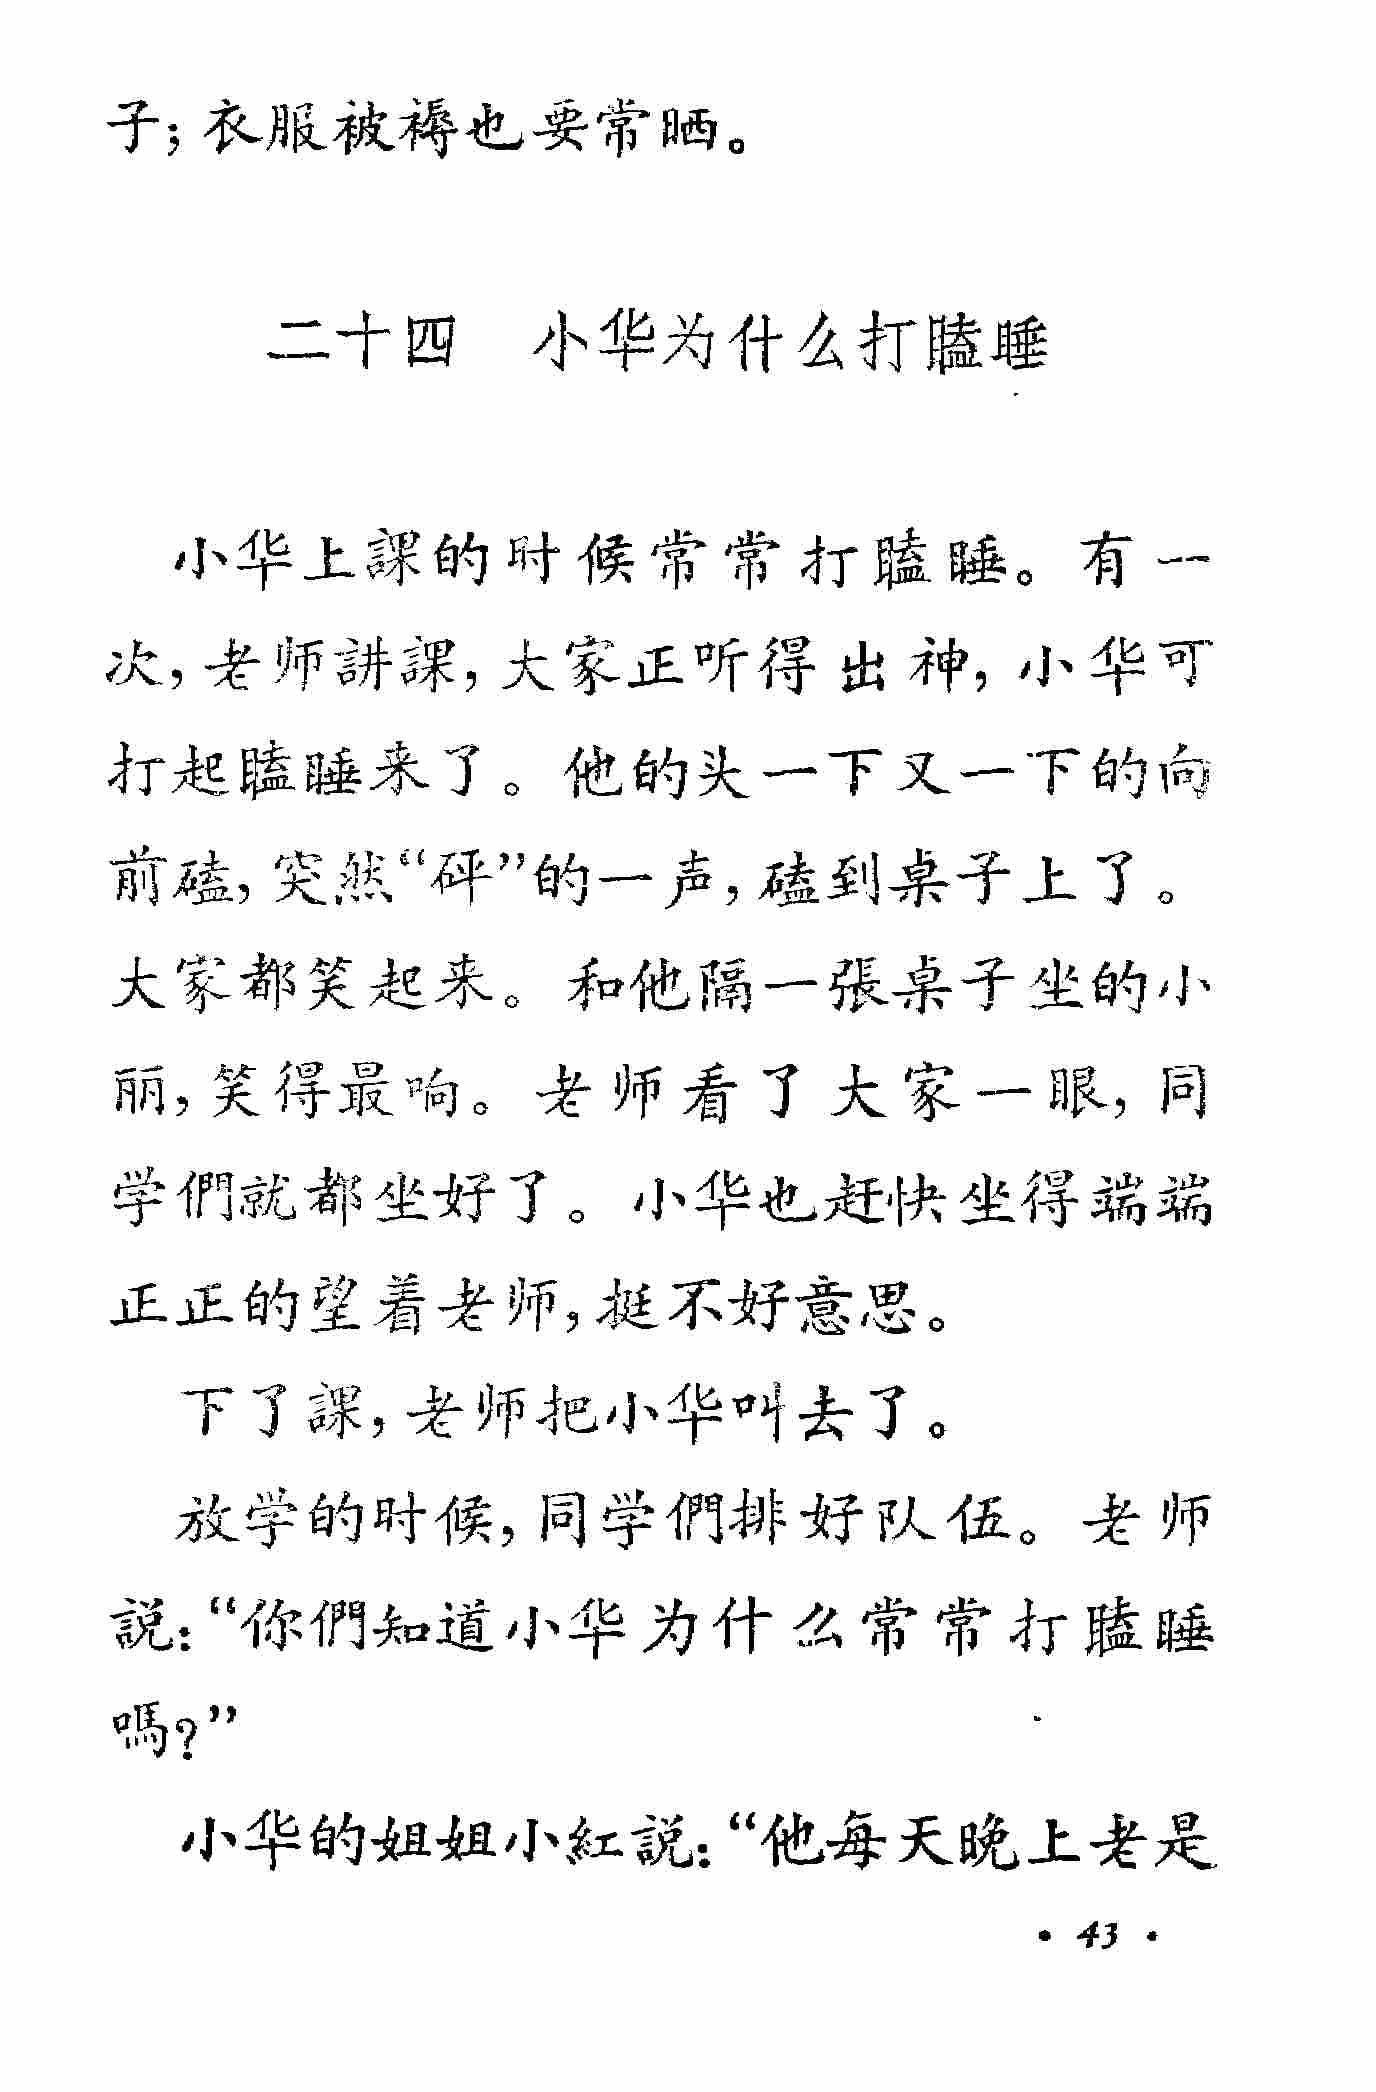 子；衣服被褥也要常晒。
二十四　小华为什么打瞌睡
小华上課的时候常常打瞌睡。有一
次，老师講課，大家正听得出神，小华可
打起瞌睡来了。他的头一下又一下的向
前磕，突然“砰”的一声，磕到桌子上了。
大家都笑起来。和他隔一張桌子坐的小
丽，笑得最响。老师看了大家一眼，同
学們就都坐好了。小华也赶快坐得端端
正正的望着老师，挺不好意思。
下了課，老师把小华叫去了。
放学的时候，同学們排好队伍。老师
説：“你們知道小华为什么常常打瞌睡
嗎？”
小华的姐姐小紅説：“他每天晚上老是
• 43 •